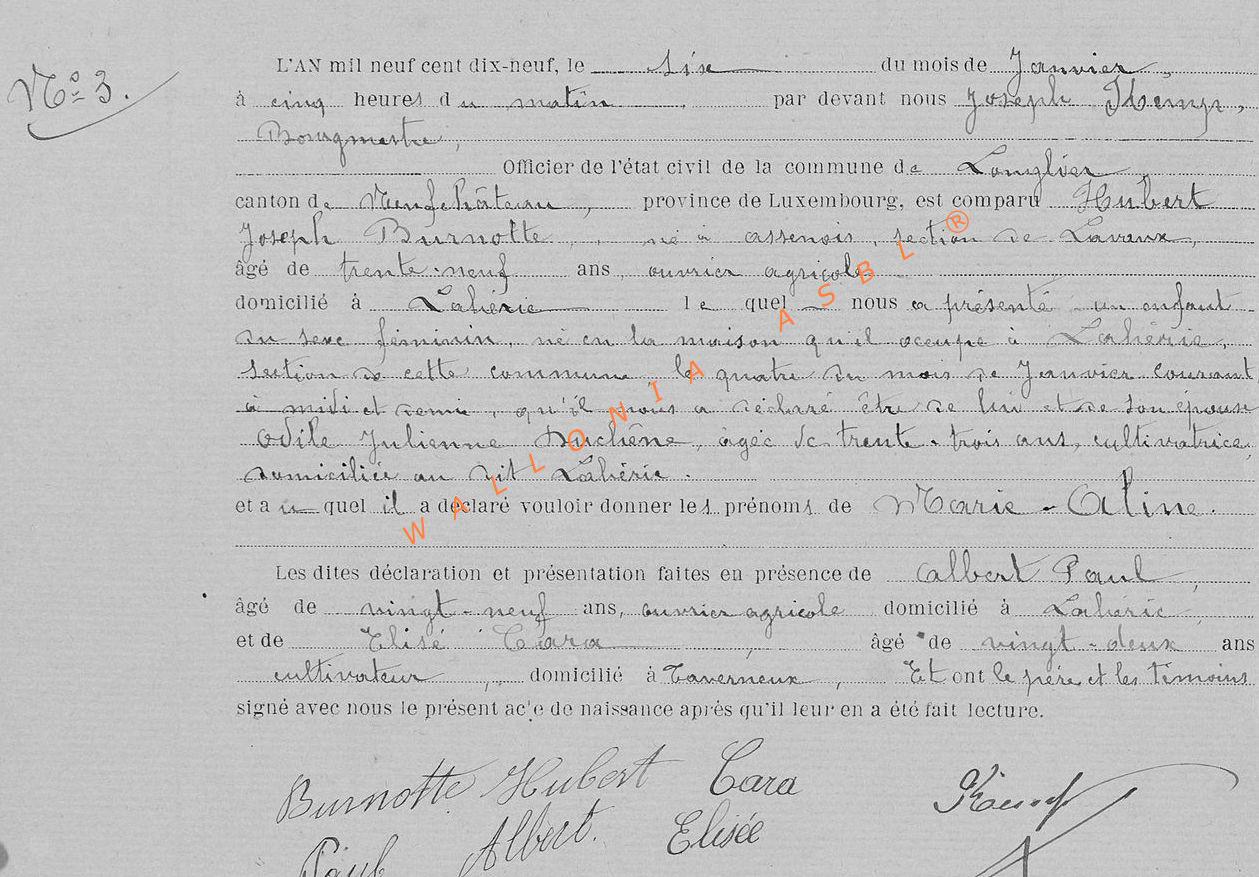 Nº 3.
L'AN mil neuf cent dix-neuf, le six du mois de Janvier,
à cinq heures du matin, par devant nous Joseph
Bourgmestre,
Officier de l'état civil de la commune de Longlier,
canton de Neufchâteau, province de Luxembourg, est comparu Hubert
Joseph Burnotte, né à assenois, section de Lavaux,
âgé de trente-neuf ans, ouvrier agricole
domicilié à Lahérie le quel nous a présenté un enfant
du sexe féminin, né en la maison qu'il occupe à Lahérie,
section de cette commune, le quatre du mois de Janvier courant
à midi et demie, qu'il nous a déclaré être de lui et de son épouse
Odile Julienne Duchêne, âgée de trente-trois ans, cultivatrice,
domiciliée au dit Lahérie.
et au quel il a déclaré vouloir donner les prénoms de Marie-Aline.
Les dites déclaration et présentation faites en présence de Albert Paul,
âgé de vingt-neuf ans, ouvrier agricole domicilié à Lahérie,
et de Elisé Cara, âgé de vingt-deux ans
cultivateur, domicilié à Taverneux, Et ont le père et les témoins
signé avec nous le présent acte de naissance après qu'il leur en a été fait lecture.
Burnotte Hubert Cara
Paul Albert. Elisée
WALLONIA ASBL ®